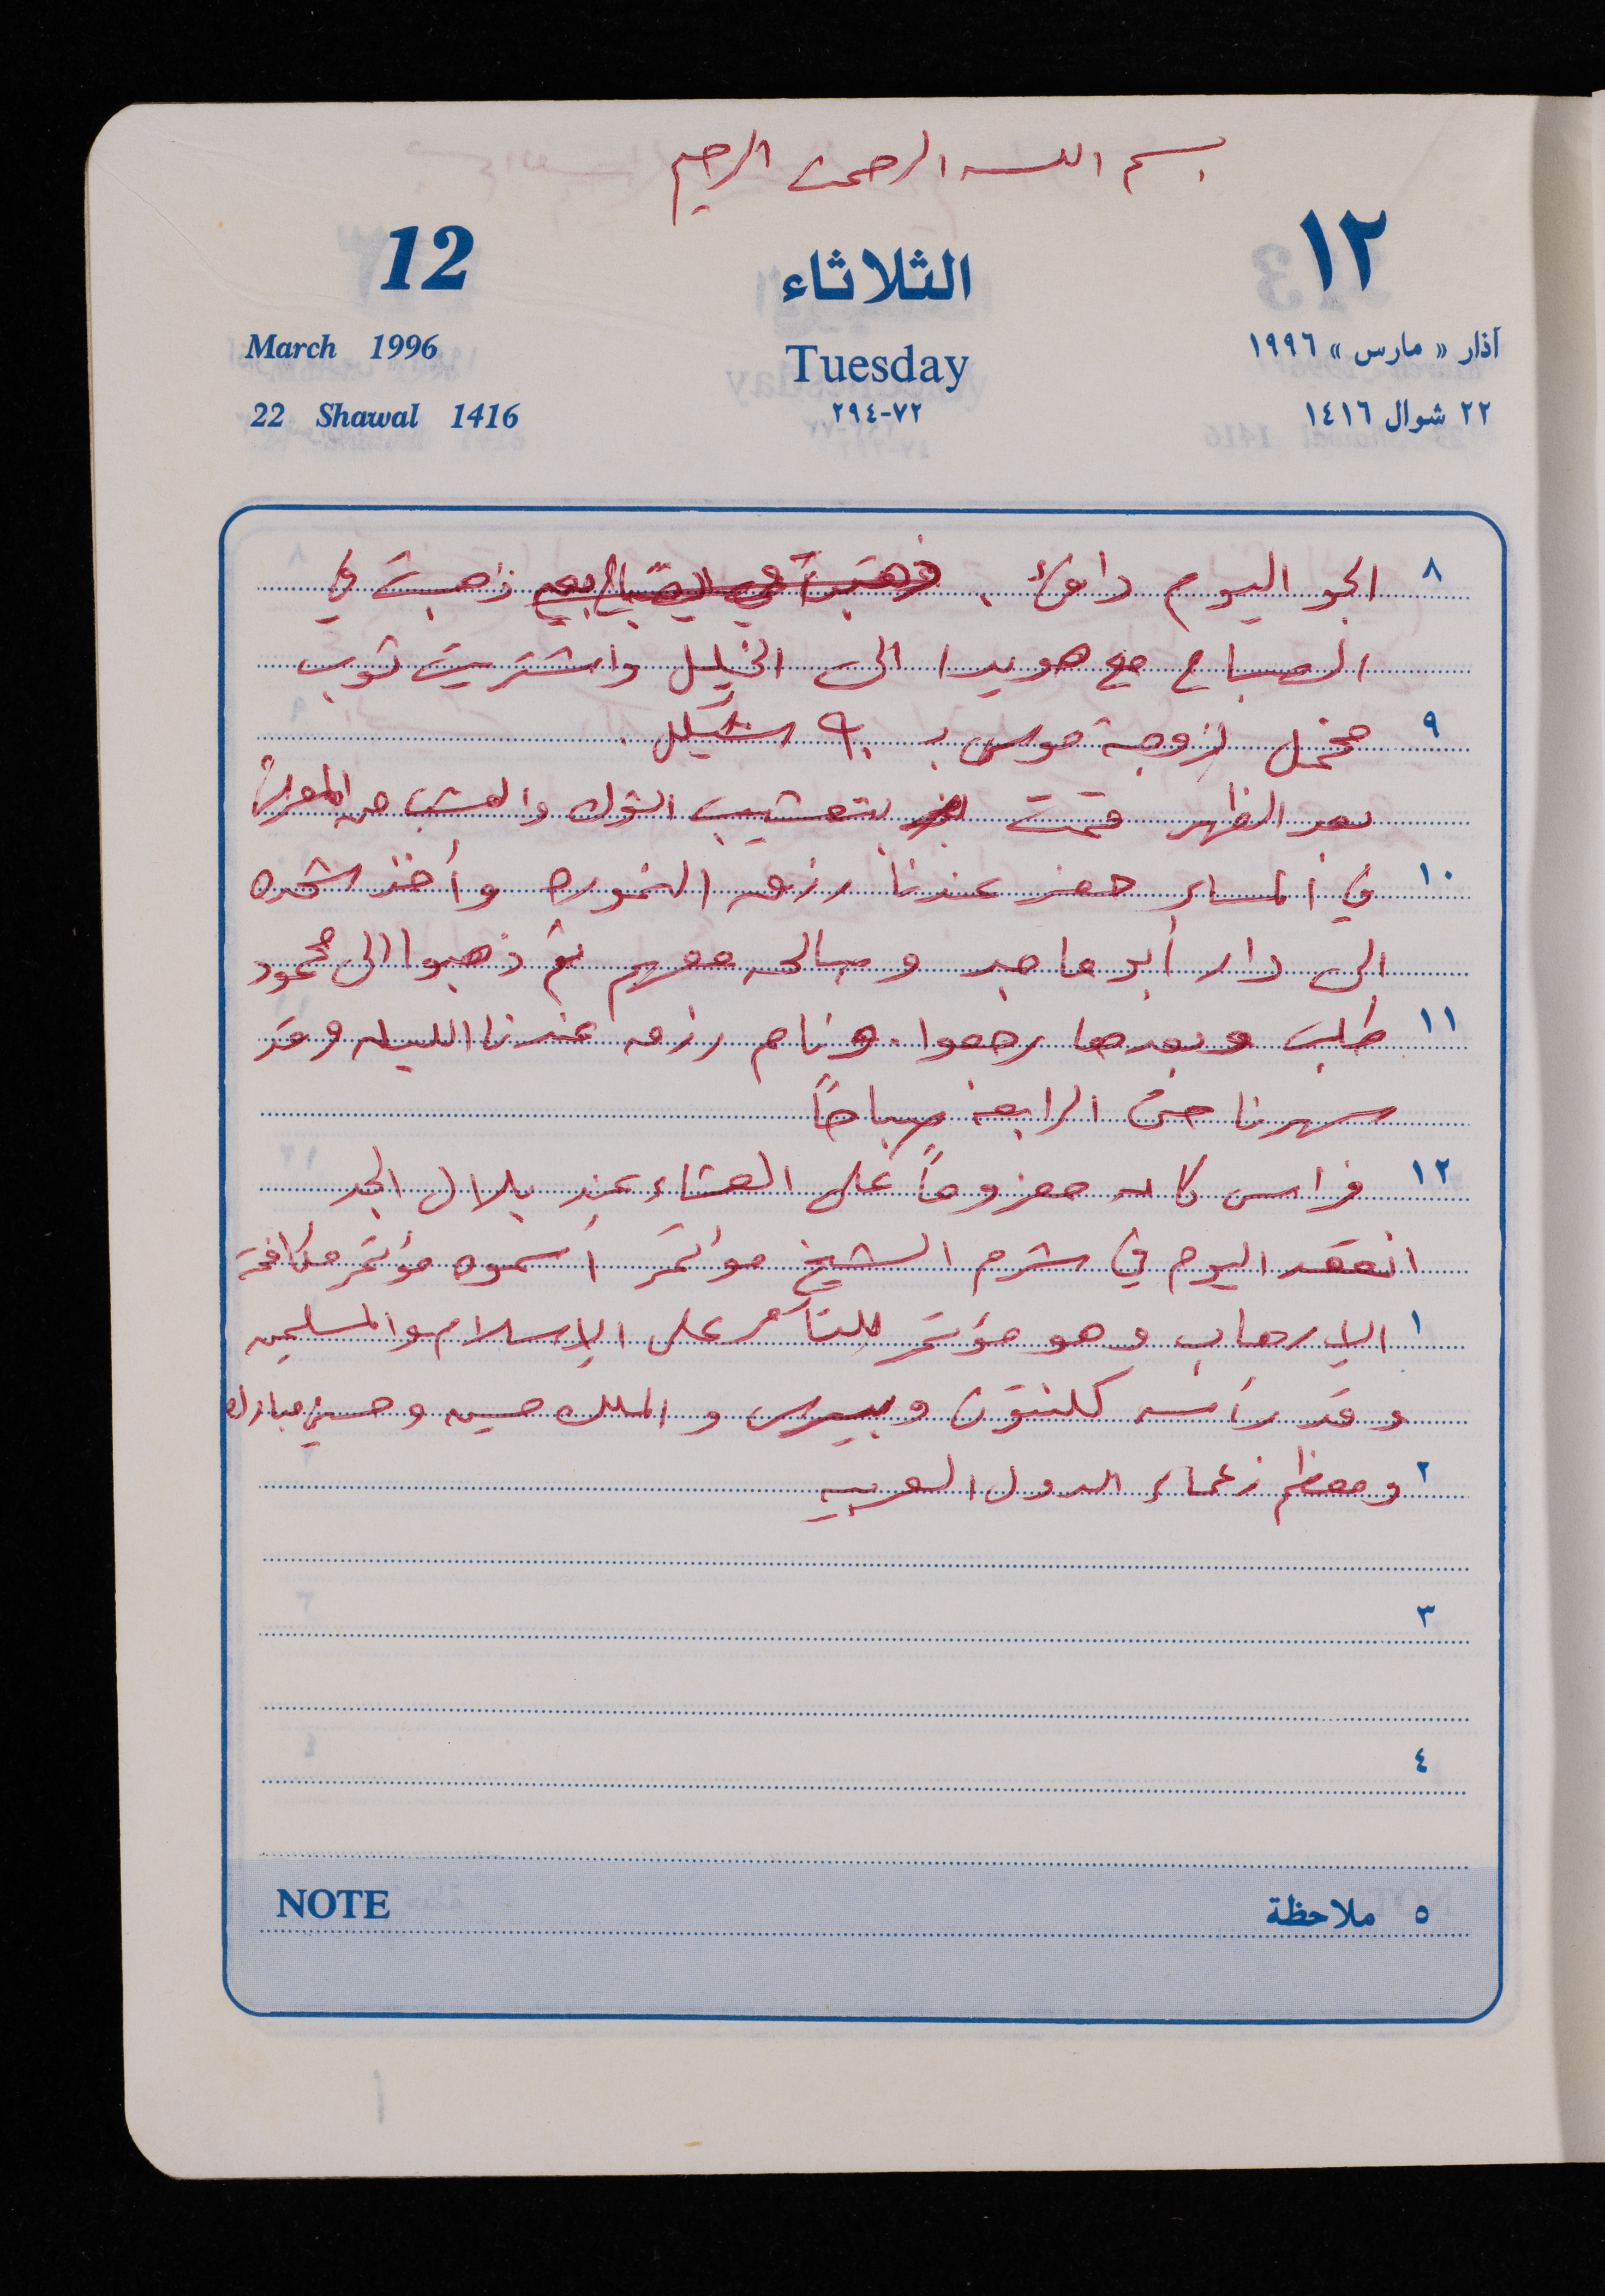 بسم الله الرحمن الرحيم
12 الثلاثاء ١٢
March 1996 Tuesday آذار « مارس » ١٩٩٦
22 Shawal 1416 ٧٢-٢٩٤ ٢٢ شوال ١٤١٦
٨ الجو اليوم دافئ . ذهبت في
الصباح مع هويدا الى الخليل واشتريت ثوب
٩ مخمل لزوجة موسى بـ ٩٠ شيكل .
بعد الظهر قمت بتعشيب الشوك والعشب من
١٠ في المساء حضر عندنا رزق النمورة وأخذ
الى دار أبو ماجد وصالحه معهم ثم ذهبوا الى محمود
١١ طلب وبعدها رجعوا . ونام رزق عندنا الليله وقد
سهرنا حتى الرابعة صباحاً
١٢ فراس كان معزوماً على العشاء عند بلال
انعقد اليوم في شرم الشيخ مؤتمر أسموه مؤتمر مكافحة
١ الإرهاب وهو مؤتمر للتآمر على الإسلام والمسلمين
وقد رأسه كلنتون وبيرس و الملك حسين وحسني مبارك
٢ ومعظم زعماء الدول العربيه
٣
٤
NOTE ٥ ملاحظة